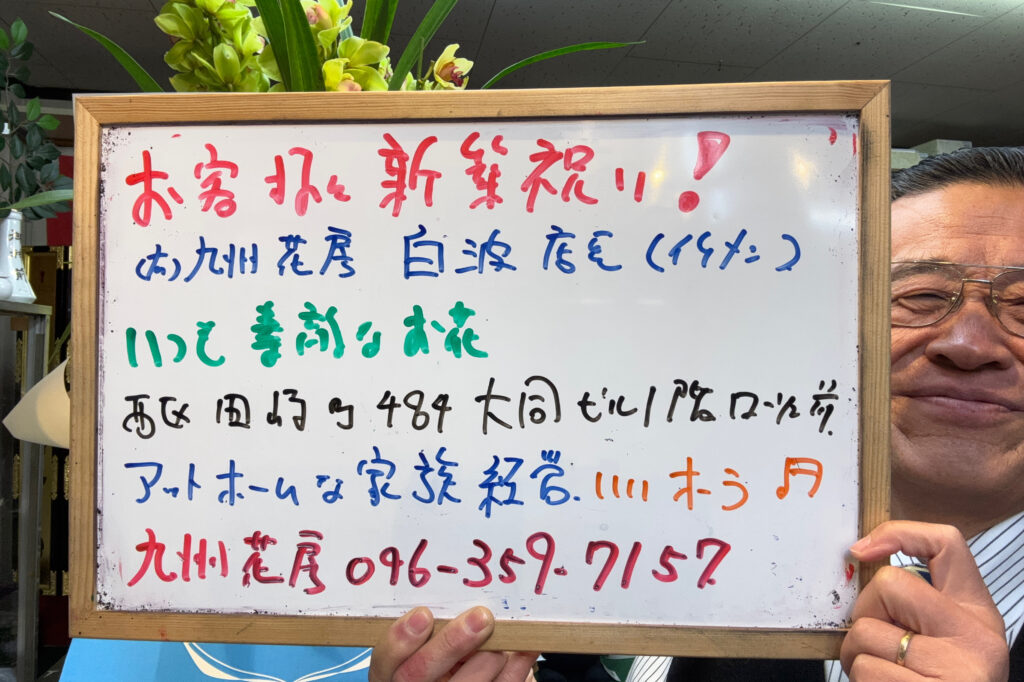 お客様に新築祝い!
(有)九州花房 白波店長(イケメン)
いつも素敵なお花
西区田崎町484大同ビル1階ローソン前
アットホームな家族経営.いいオーラ♬
九州花房096-359-7157